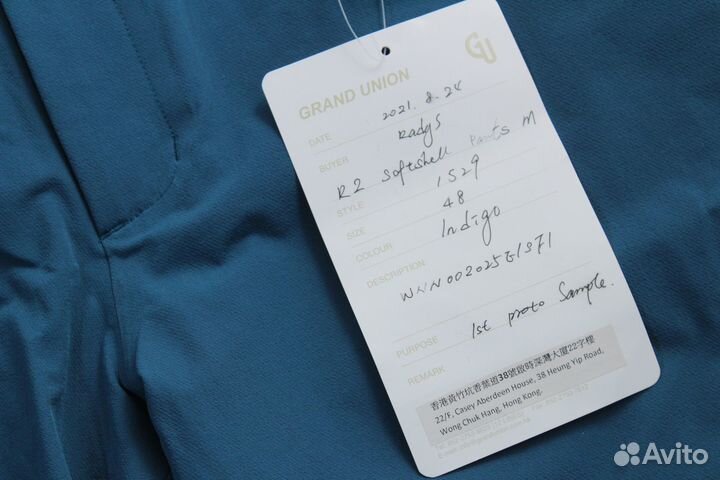 GU
GRAND UNION
DATE 2021. 8. 24
BUYER Radys
R2 Softshell Pants M
STYLE 1529
SIZE 48
COLOUR Indigo
DESCRIPTION
PURPOSE 1st proto sample.
REMARK
22/F, Casey Aberdeen House, 38 Heung Yip Road,
Wong Chuk Hang, Hong Kong.
Avito